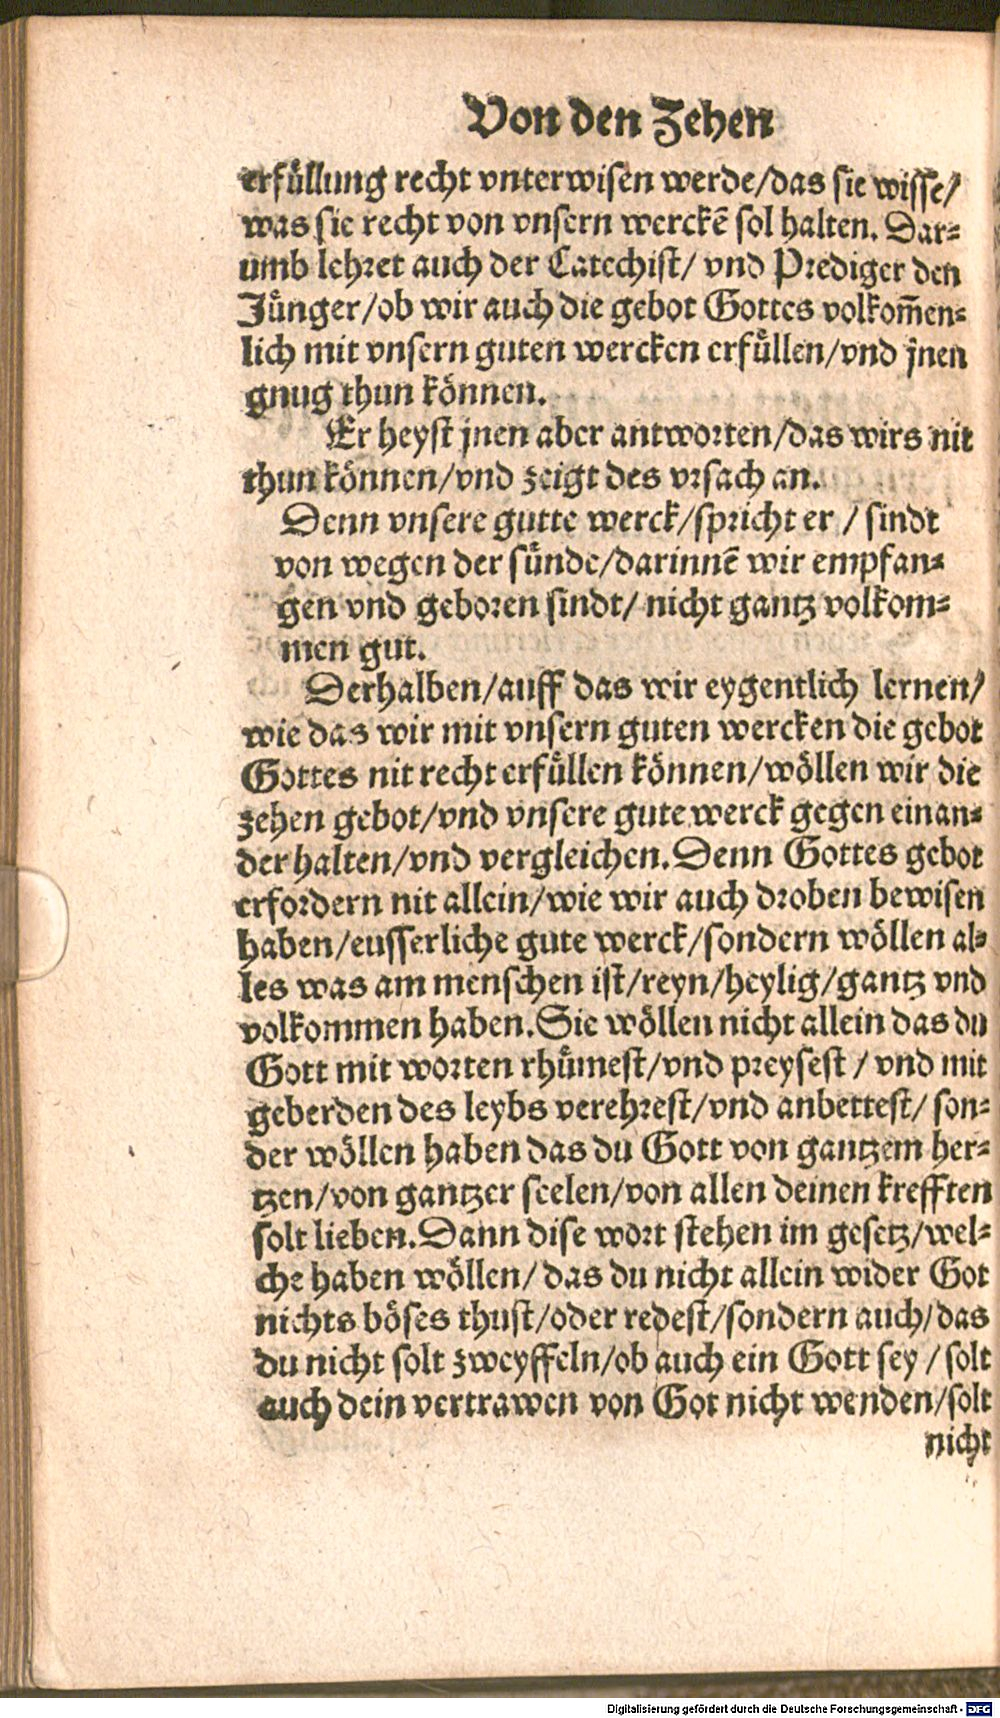 Von den Zehen
erfüllung recht vnterwisen werde/das sie wisse/
was sie recht von vnsern werckē sol halten. Dar⸗
umb lehret auch der Catechist/ vnd Prediger den
Jünger/ob wir auch die gebot Gottes volkom̄en⸗
lich mit vnsern guten wercken erfüllen/vnd jnen
gnug thun können.
Er heyst jnen aber antworten/das wirs nit
thun können/vnd zeigt des vrsach an.
Denn vnsere gutte werck/spricht er / sindt
von wegen der sünde/darinnē wir empfan⸗
gen vnd geboren sindt/ nicht gantz volkom⸗
men gut.
Derhalben/auff das wir eygentlich lernen/
wie das wir mit vnsern guten wercken die gebot
Gottes nit recht erfüllen können/wöllen wir die
zehen gebot/vnd vnsere gute werck gegen einan⸗
der halten/vnd vergleichen. Denn Gottes gebot
erfordern nit allein/wie wir auch droben bewisen
haben/eusserliche gute werck/sondern wöllen al⸗
les was am menschen ist/reyn/heylig/gantz vnd
volkommen haben. Sie wöllen nicht allein das du
Gott mit worten rhümest/vnd preysest / vnd mit
geberden des leybs verehrest/vnd anbettest/ son⸗
der wöllen haben das du Gott von gantzem her⸗
tzen/von gantzer seelen/von allen deinen krefften
solt lieben. Dann dise wort stehen im gesetz/wel⸗
che haben wöllen/ das du nicht allein wider Got
nichts böses thust/oder redest/sondern auch/das
du nicht solt zweyffeln/ob auch ein Gott sey / solt
auch dein vertrawen von Got nicht wenden/solt
nicht
Digitalisierung gefördert durch die Deutsche Forschungsgemeinschaft - DFG